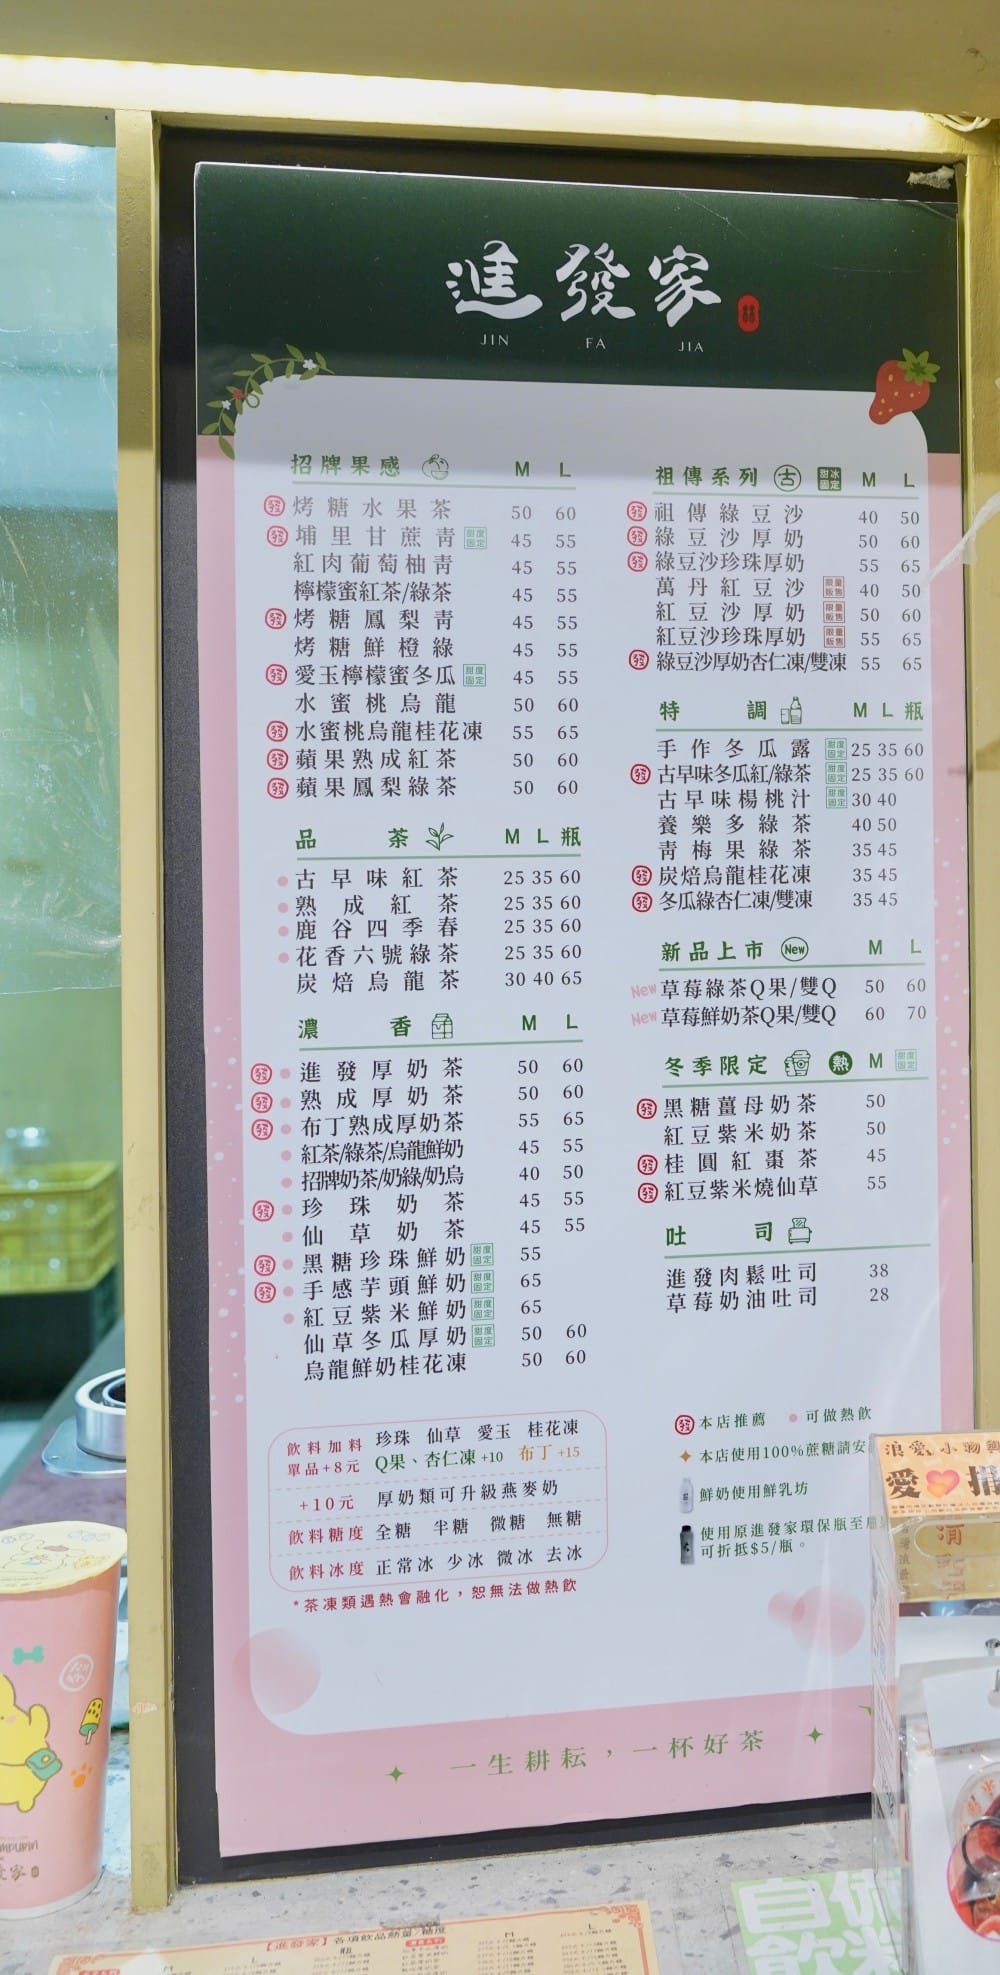 進發家
JIN FA JIA
招牌果感 M L
發 烤糖水果茶 50 60
發 埔里甘蔗青 甜度固定 45 55
紅肉葡萄柚青 45 55
檸檬蜜紅茶/綠茶 45 55
發 烤糖鳳梨青 45 55
烤糖鮮橙綠 45 55
發 愛玉檸檬蜜冬瓜 甜度固定 45 55
水蜜桃烏龍 50 60
發 水蜜桃烏龍桂花凍 55 65
發 蘋果熟成紅茶 50 60
發 蘋果鳳梨綠茶 50 60
品茶 M L 瓶
古早味紅茶 25 35 60
熟成紅茶 25 35 60
鹿谷四季春 25 35 60
花香六號綠茶 25 35 60
炭焙烏龍茶 30 40 65
濃香 M L
發 進發厚奶茶 50 60
發 熟成厚奶茶 50 60
發 布丁熟成厚奶茶 55 65
紅茶/綠茶/烏龍鮮奶 45 55
招牌奶茶/奶綠/奶烏 40 50
發 珍珠奶茶 45 55
仙草奶茶 45 55
發 黑糖珍珠鮮奶 甜度固定 55
發 手感芋頭鮮奶 甜度固定 65
紅豆紫米鮮奶 甜度固定 65
仙草冬瓜厚奶 甜度固定 50 60
烏龍鮮奶桂花凍 50 60
飲料加料 單品+8元 珍珠 仙草 愛玉 桂花凍
Q果、杏仁凍+10 布丁+15
+10元 厚奶類可升級燕麥奶
飲料糖度 全糖 半糖 微糖 無糖
飲料冰度 正常冰 少冰 微冰 去冰
*茶凍類遇熱會融化，恕無法做熱飲
祖傳系列 古 甜冰固定 M L
發 祖傳綠豆沙 40 50
發 綠豆沙厚奶 50 60
發 綠豆沙珍珠厚奶 55 65
萬丹紅豆沙 限量販售 40 50
紅豆沙厚奶 限量販售 50 60
紅豆沙珍珠厚奶 限量販售 55 65
發 綠豆沙厚奶杏仁凍/雙凍 55 65
特調 M L 瓶
手作冬瓜露 甜度固定 25 35 60
發 古早味冬瓜紅/綠茶 甜度固定 25 35 60
古早味楊桃汁 甜度固定 30 40
養樂多綠茶 40 50
青梅果綠茶 35 45
發 炭焙烏龍桂花凍 35 45
發 冬瓜綠杏仁凍/雙凍 35 45
新品上市 New M L
New 草莓綠茶Q果/雙Q 50 60
New 草莓鮮奶茶Q果/雙Q 60 70
冬季限定 熱 M 甜度固定
發 黑糖薑母奶茶 50
紅豆紫米奶茶 50
發 桂圓紅棗茶 45
發 紅豆紫米燒仙草 55
吐司
進發肉鬆吐司 38
草莓奶油吐司 28
發 本店推薦 可做熱飲
本店使用100%蔗糖請安
鮮奶使用鮮乳坊
使用原進發家環保瓶至
可折抵$5/瓶。
一生耕耘，一杯好茶
浪愛小物
愛 捐
【進發家】各項飲品熱量/糖度
M 瓶 L M L
自 休
飲
家